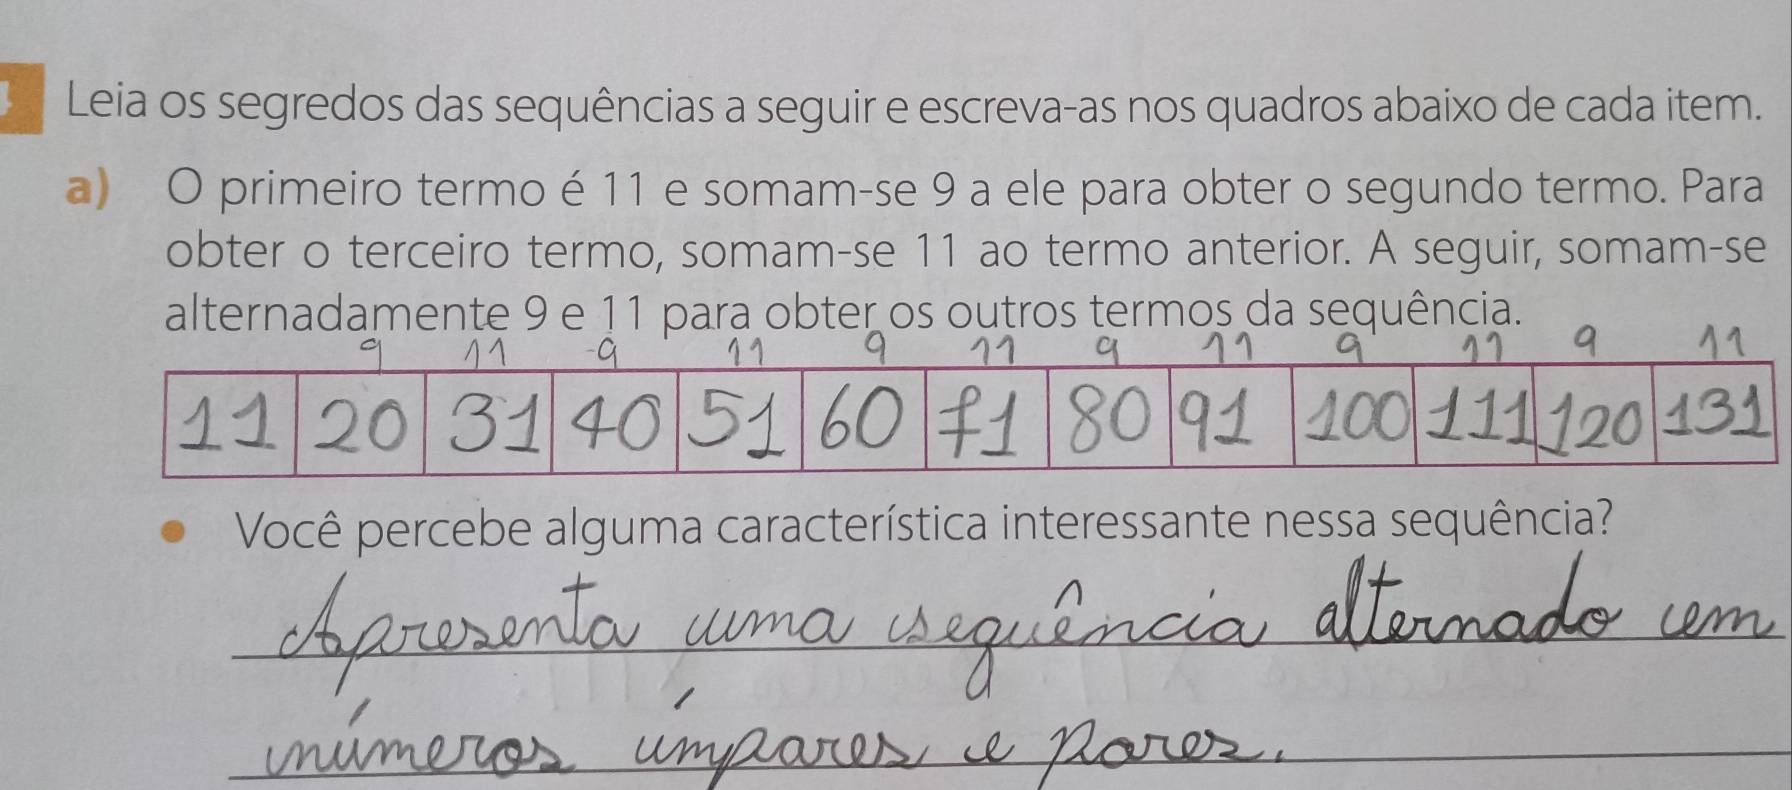 Leia os segredos das sequências a seguir e escreva-as nos quadros abaixo de cada item.
a) O primeiro termo é 11 e somam-se 9 a ele para obter o segundo termo. Para
obter o terceiro termo, somam-se 11 ao termo anterior. A seguir, somam-se
alternadamente 9 e 11 para obter os outros termos da sequência.
9 11 9 11 9 11 9 11 9 11 9 11
11 20 31 40 51 60 71 80 91 100 111 120 131
• Você percebe alguma característica interessante nessa sequência?
Apresenta uma sequência alternado em
números ímpares e pares.